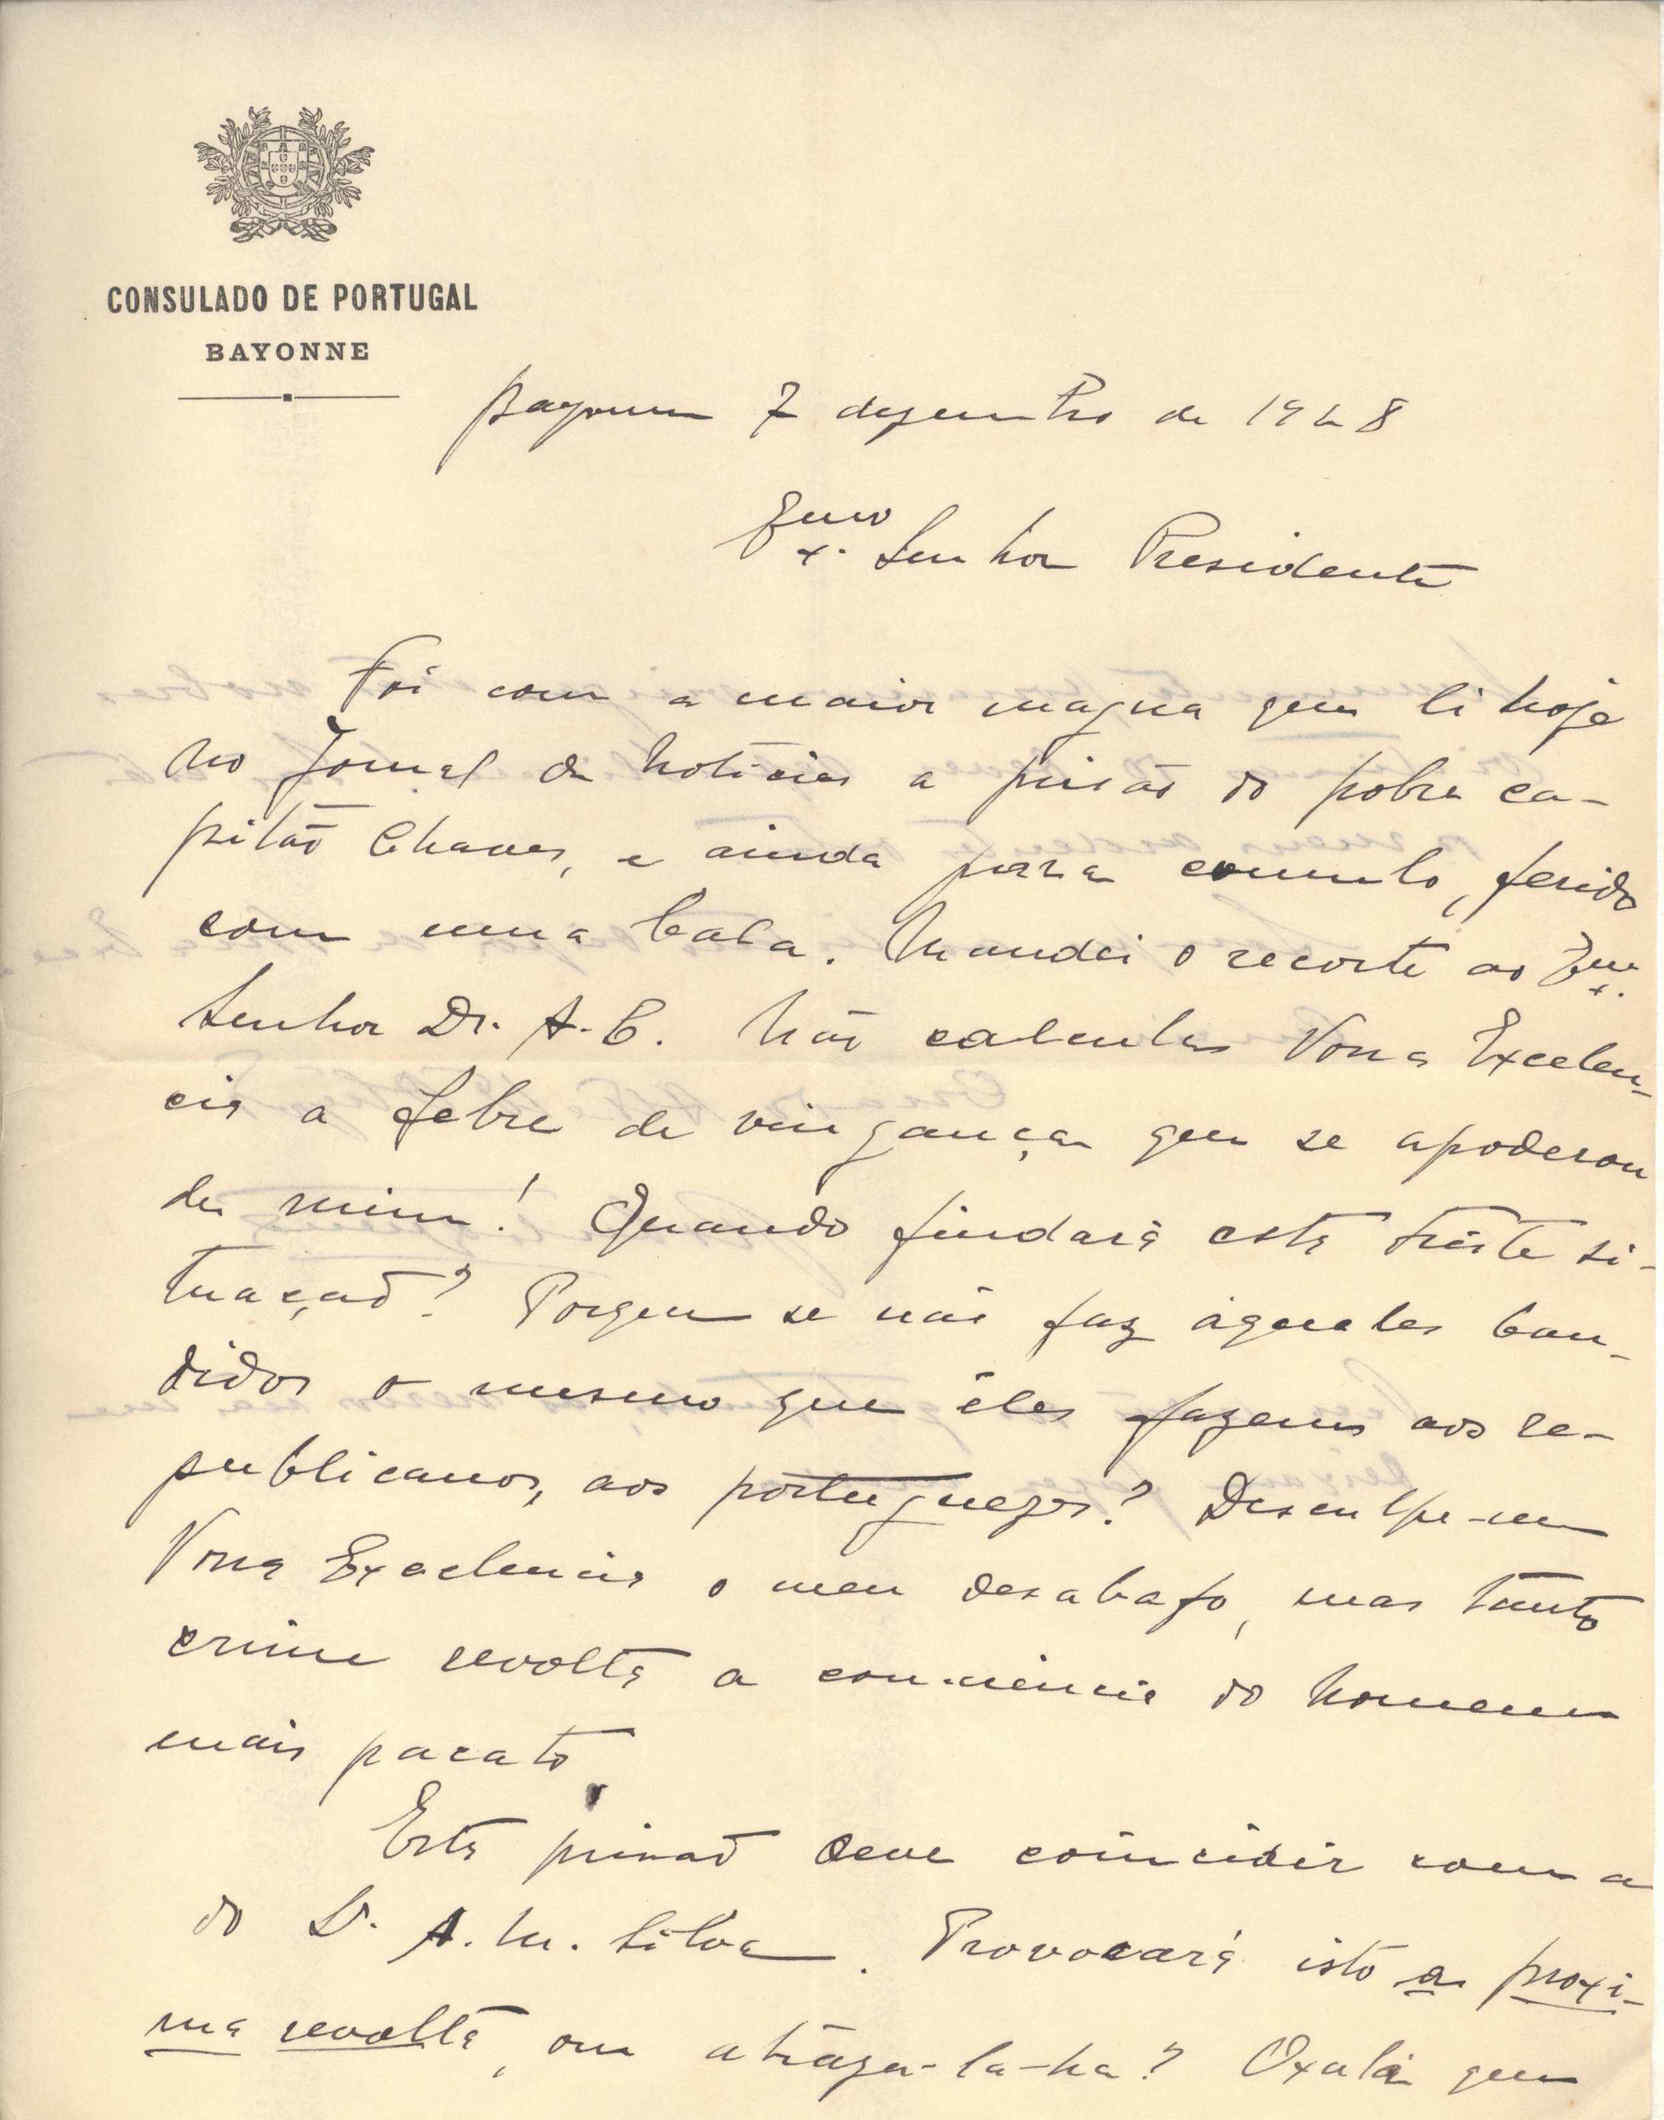 CONSULADO DE PORTUGAL
BAYONNE
Bayonne 7 dezembro de 1928
Exmo Senhor Presidente
Foi com a maior magua que li hoje
no Jornal de Noticias a prisão do pobre ca-
pitão Chaves, e ainda para cumulo, ferido
com uma bala. Mandei o recorte ao Exmo.
Senhor Dr. A. C. Não calcula Vossa Excelen-
cia a febre de vingança que se apoderou
de mim! Quando findará esta triste si-
tuação? Porque se não faz àqueles ban-
didos o mesmo que êles fazem aos re-
publicanos, aos portuguezes? Desculpe-me
Vossa Excelencia o meu desabafo, mas tanto
crime revolta a consciencia do homem
mais pacato.
Esta prisão deve coincidir com a
do Dr. A. M. Silva. Provocará isto a proxi-
ma revolta, ou atraza-la-ha? Oxalá que